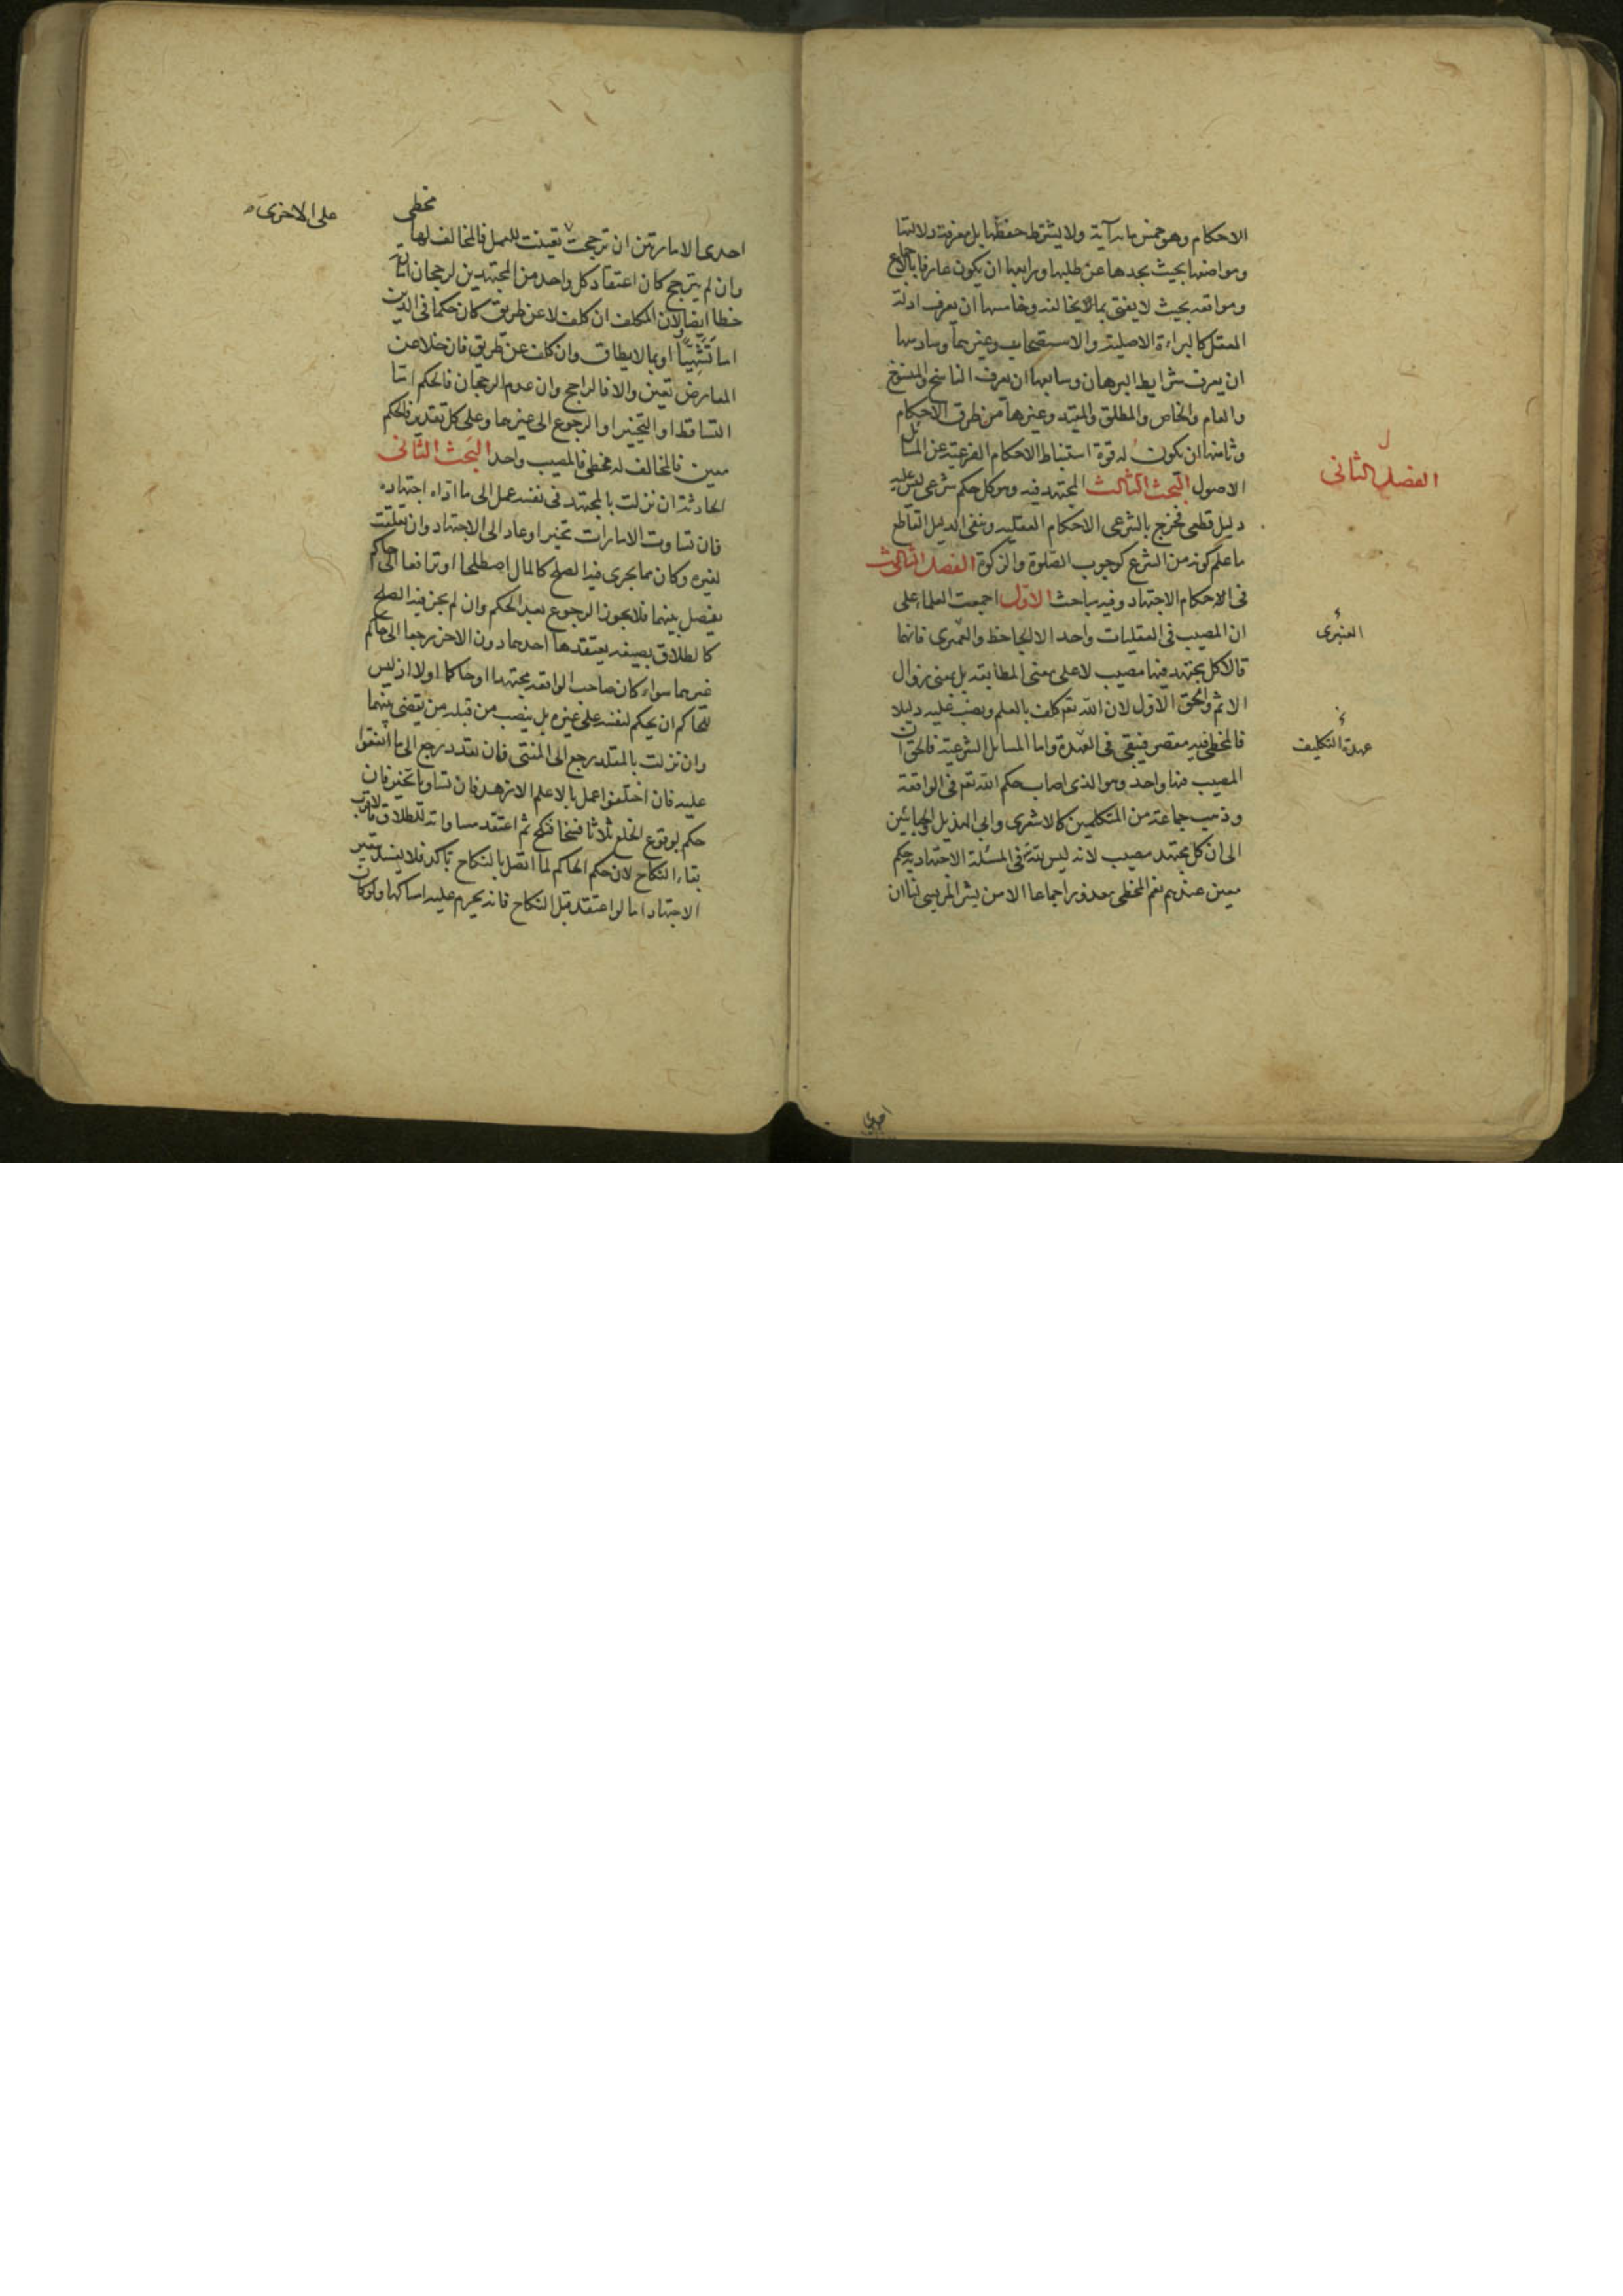 الاحكام وهو خمس مایه آية ولا يشترط حفظها بل معرفة دلالتها
ومواضعها بحيث يجدها عن طلبها ورابعها ان يكون عارفا بالاجماع
ومواقعه بحيث لا يفتى بما يخالفه وخامسها ان يعرف ادلة
العقل كالبراءة الاصلية والاستصحاب وغيرهما وسادسها
ان يعرف شرايط البرهان وسابعها ان يعرف الناسخ والمنسوخ
والعام والخاص والمطلق والمقيد وغيرها من طرق الاحكام
وثامنها ان يكون له قوة استنباط الاحكام الفرعية عن المسائل
الاصول البحث الثالث المجتهد فيه وهو كل حكم شرعى ليس عليه
الفصل الثانى
دليل قطعى فخرج بالشرعى الاحكام العقليه وبنفى الدليل القاطع
ما علم كونه من الشرع كوجوب الصلوة والزكوة الفصل الثالث
فى الاحكام الاجتهاد وفيه مباحث الاول اجمعت العلماء على
ان المصيب فى العقليات واحد الا الجاحظ والعمبرى فانهما
العنبرى
قالا كل مجتهد فيها مصيب لا على معنى المطابقه بل بمعنى زوال
الاثم والحق الاول لان الله تعـ كلف بالعلم ونصب عليه دليلا
فالمخطى فيه مقصر فيبقى فى العهدة واما المسائل الشرعية فالحق ان
عهدة التكليف
المصيب فيها واحد وهو الذى اصاب حكم الله تعـ فى الواقعة
وذهب جماعة من المتكلمين كالاشعرى وابى الهذيل والجبائين
الى ان كل مجتهد مصيب لانه ليس لله تعـ فى المسئلة الاجتهادية حكم
معين عندهم نعم المخطى معذور اجماعا الا من بشر المريسى لنا ان
احدى
احدى الامارتين ان ترجحت تعينت للعمل فالمخالف لها مخطى
على الاخرى
وان لم يترجح كان اعتقاد كل واحد من المجتهدين لرجحان امارته
خطا ايضا ولان المكلف ان كلف لا عن طريق كان حكما فى الدين
اما تشهيا او بما لا يطاق وان كلف عن طريق فان خلا عن
المعارض تعين والا فالراجح وان عدم الرجحان فالحكم اما
التساقط او التخيير او الرجوع الى غيرها وعلى كل تقدير فالحكم
معين فالمخالف له مخطى فالمصيب واحد البحث الثانى
الحادثة ان نزلت بالمجتهد فى نفسه عمل الى ما اداه اجتهاده
فان تساوت الامارات تخير او عاد الى الاجتهاد وان تعلقت
لغيره وكان مما يجرى فيه الصلح كالمال اصطلحا او ترافعا الى حاكم
يفصل بينهما فلا يجوز الرجوع بعد الحكم وان لم يجز فيه الصلح
كالطلاق بصيغه يعتقدها احدهما دون الاخر رجعا الى حاكم
غيرهما سواء كان صاحب الواقعه مجتهدا او حاكما اولا اذ ليس
للحاكم ان يحكم لنفسه على غيره بل ينصب من قبله من يقضى بينهما
وان نزلت بالمقلد رجع الى المفتى فان تعدد رجع الى ما اتفقوا
عليه فان اختلفوا عمل بالاعلم الازهد فان تساويا تخير فان
حكم بوقوع الخلع ثلاثا فسخا فنكح ثم اعتقد مساواته للطلاق فالاقرب
بقاء النكاح لان حكم الحاكم لما اتصل بالنكاح تاكد فلا يفسد بتغير
الاجتهاد اما لو اعتقد قبل النكاح فانه يحرم عليه امساكها ولو كان